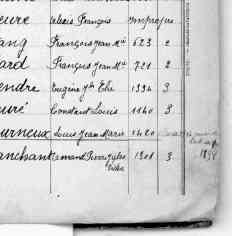 eure Alexis François impropre
ang François Jean Mie 623 2
ard François Jean Mie 721 2
endre Eugène Jh Elie 1334 3
euré Constant Louis 1140 3
urneux Louis Jean Marie 1420
anchant Armand Pierre Jules 1301 3